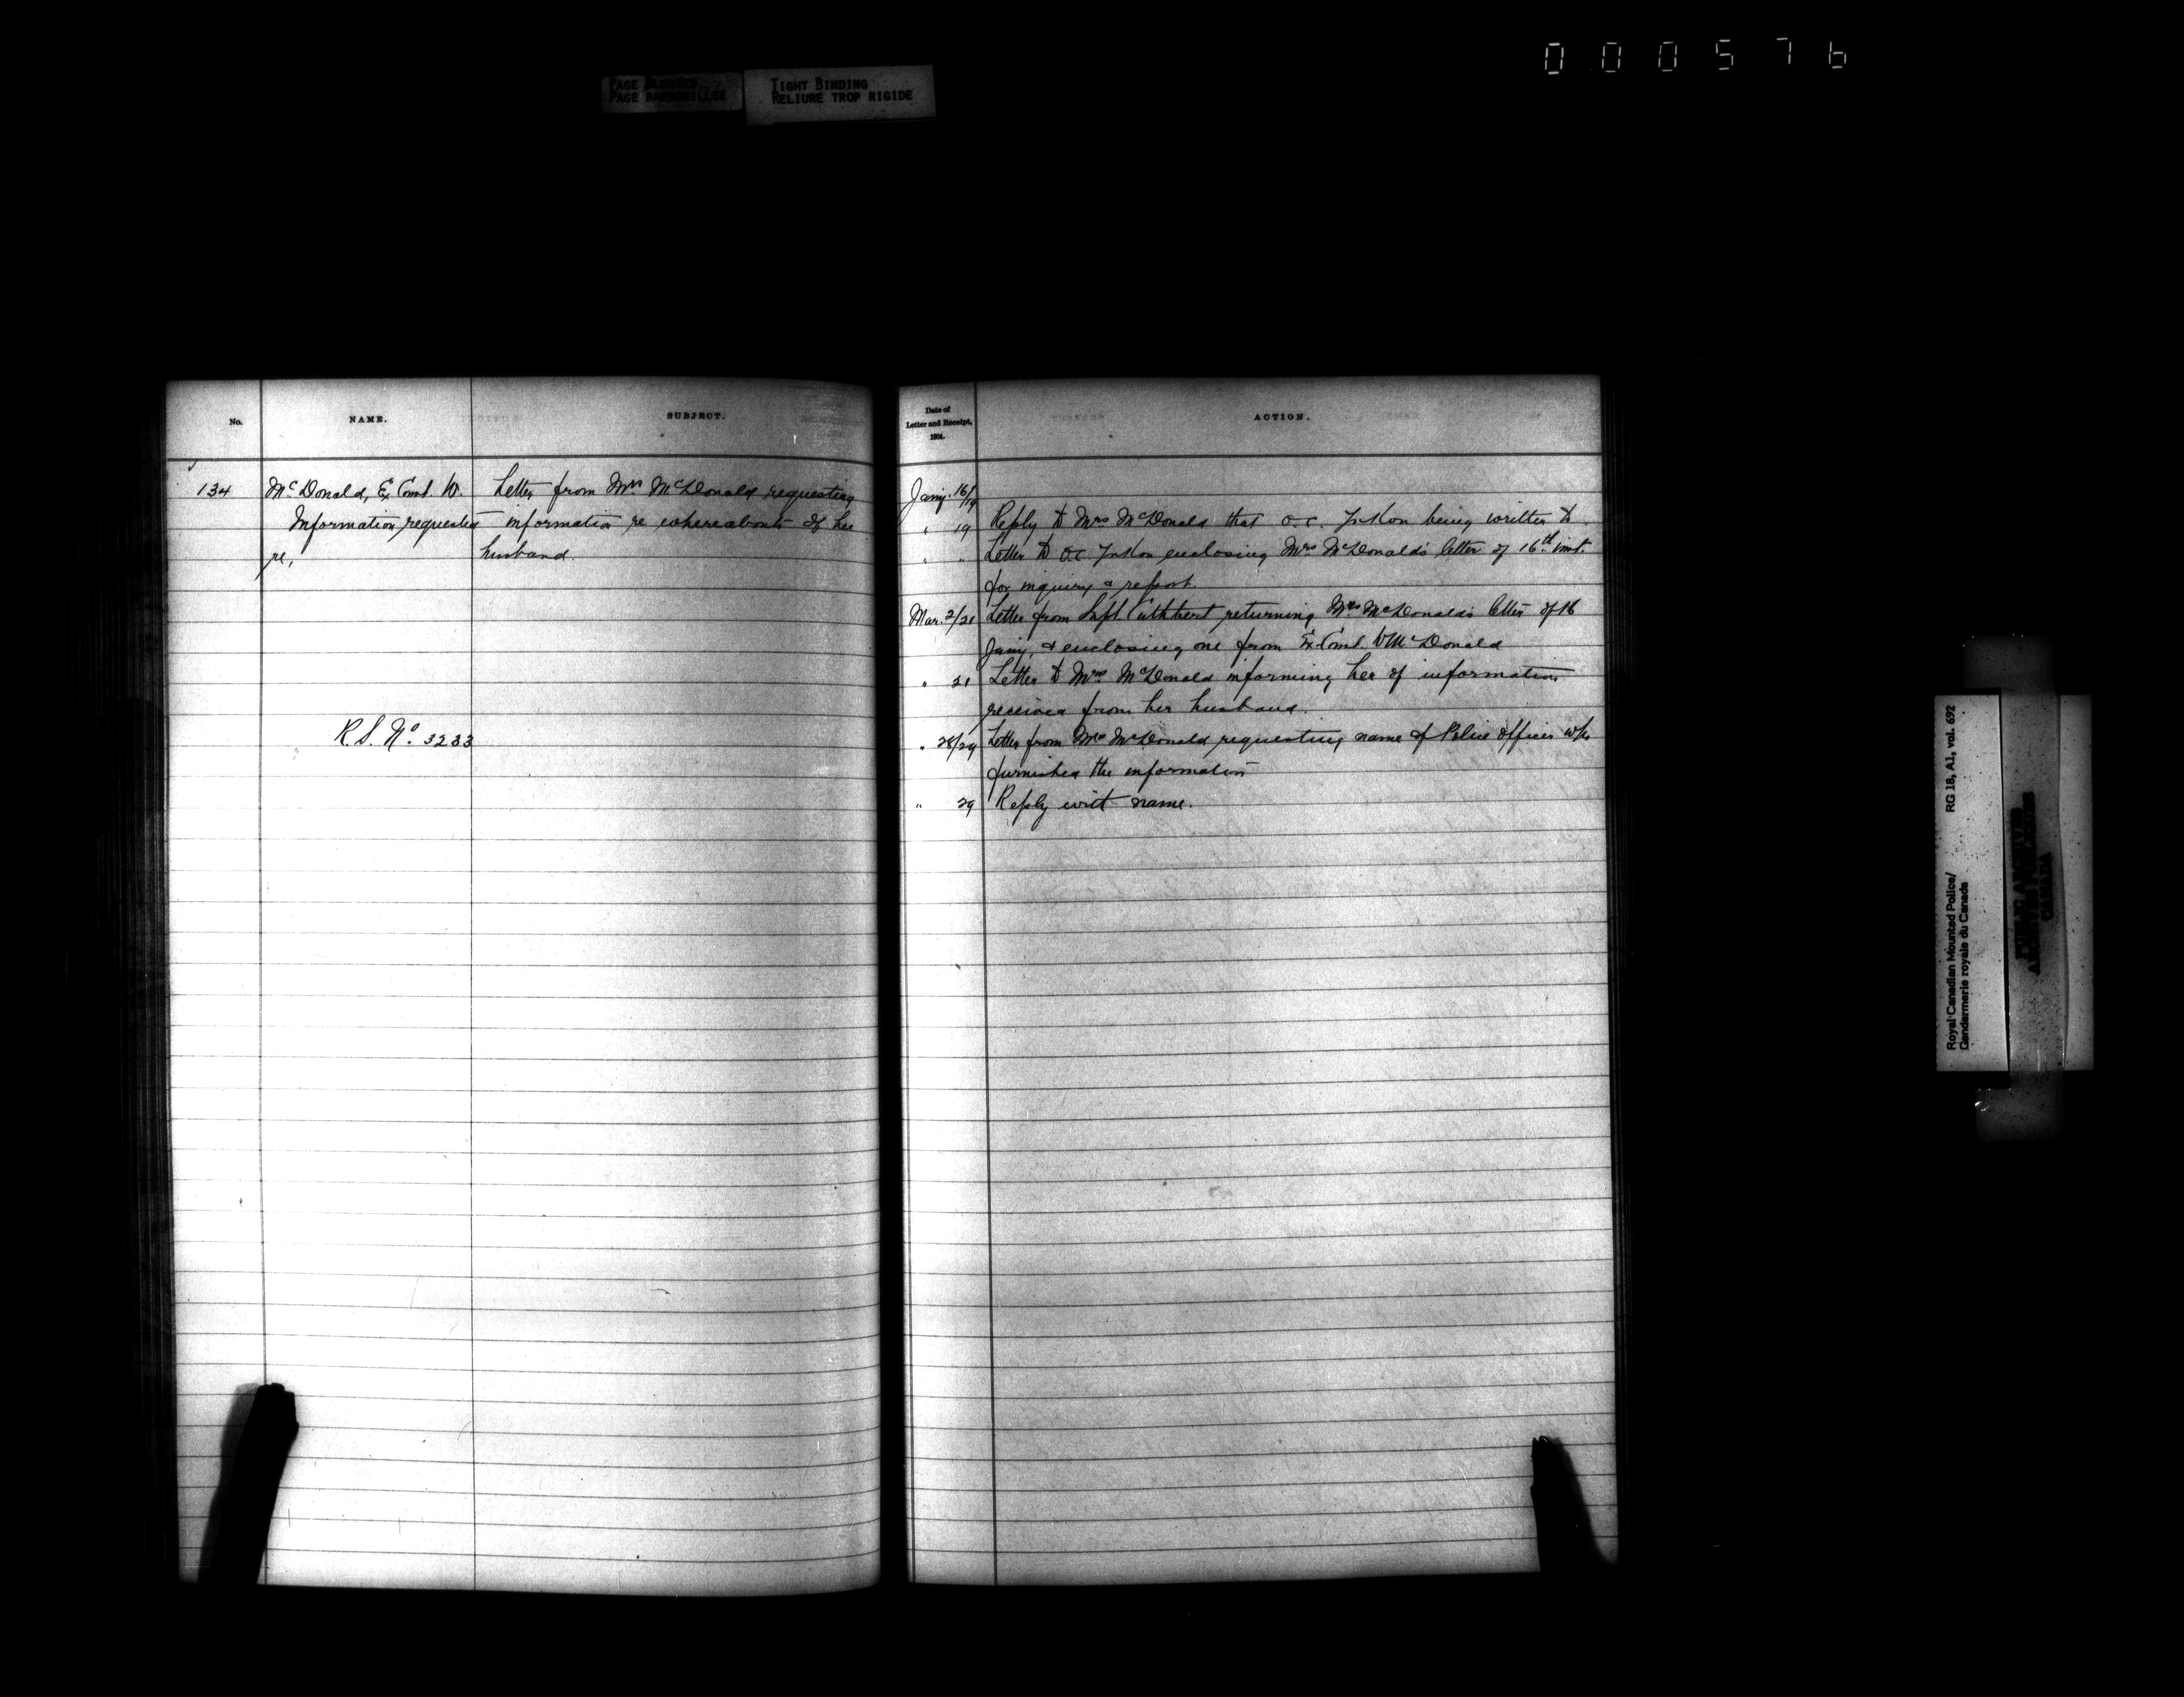 000576
PAGE BLURRED
PAGE BARBOUILLEE
TIGHT BINDING
RELIURE TROP RIGIDE
No.
NAME.
SUBJECT.
134
McDonald, Ex Const. W.
Information requested
re,
R.S. No. 3233
Letter from Mrs McDonald requesting
information re whereabouts of her
husband.
Date of
Letter and Receipt,
1904.
ACTION.
Jany. 16/19
" 19 Reply to Mrs McDonald that O.C. Yukon being written to.
" " Letter to O.C. Yukon enclosing Mrs McDonald's letter of 16th inst.
for inquiry & report.
Mar. 2/21 Letter from Supt. Cuthbert returning Mrs McDonald's letter of 16
Jany, & enclosing one from Ex Const. W McDonald
" 21 Letter to Mrs McDonald informing her of information
received from her husband.
" 28/29 Letter from Mrs McDonald requesting name of Police Officer who
furnished the information
" 29 Reply with name.
Royal Canadian Mounted Police/
Gendarmerie royale du Canada
RG 18, A1, vol. 692
PUBLIC ARCHIVES
ARCHIVES PUBLIQUES
CANADA